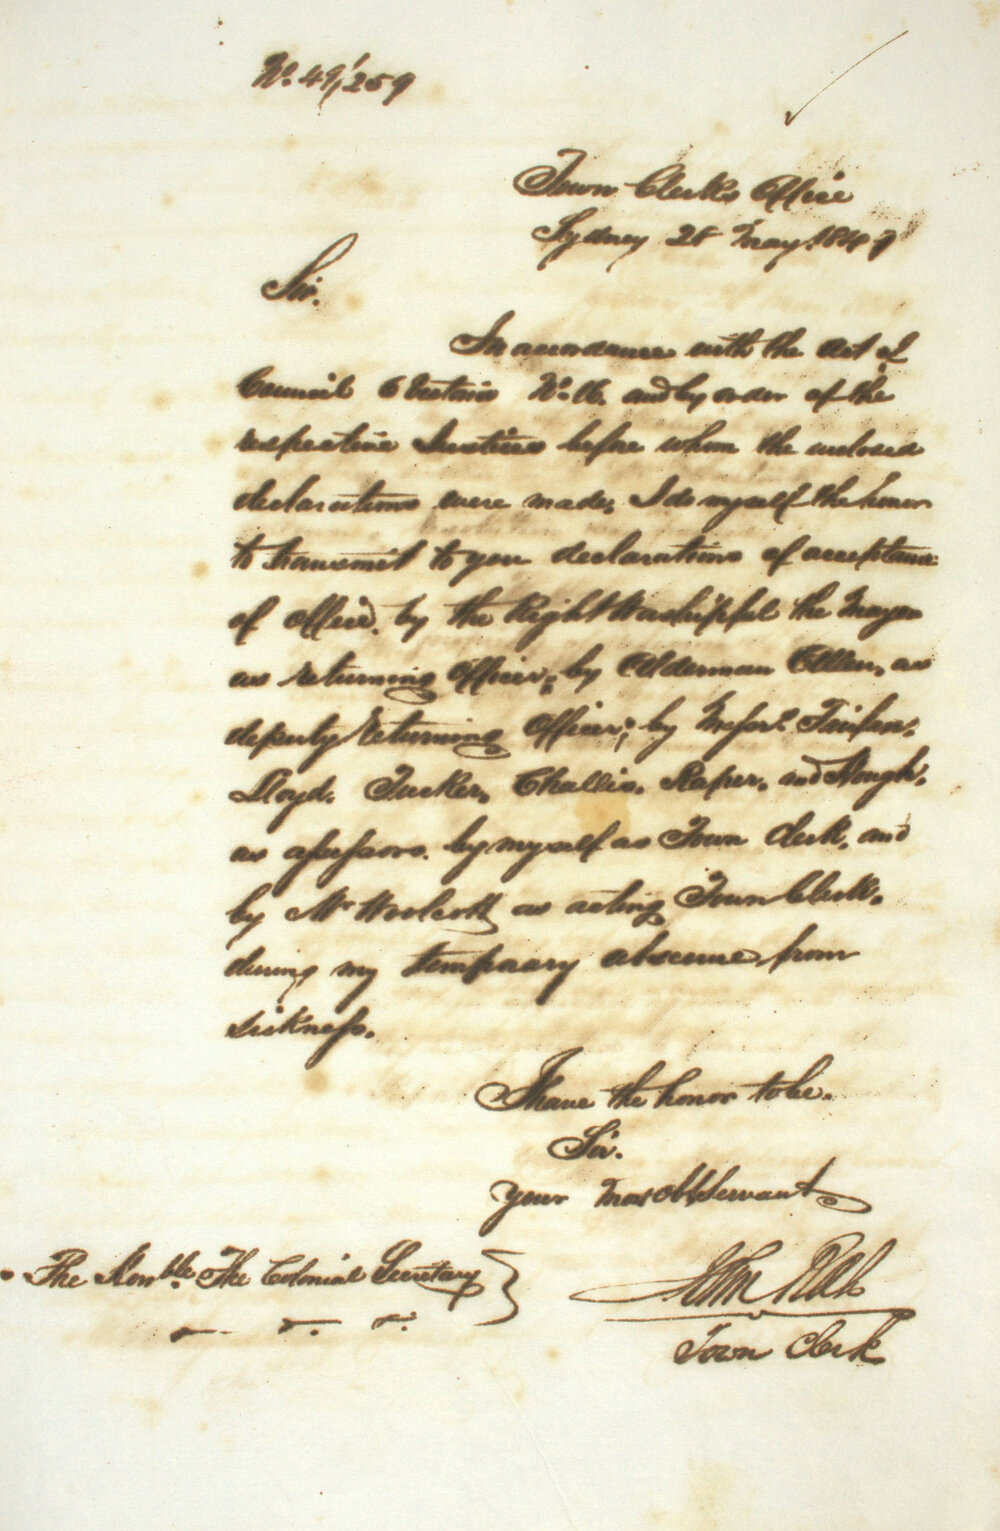 No. 49/259
Town Clerks Office
Sydney 28 May 1849
Sir.
In accordance with the Act of
Council 6 Victoria No. 16. and by order of the
respective Justices before whom the enclosed
declarations were made, I do myself the honor
to transmit to you declarations of acceptance
of office, by the Right Worshipful the Mayor
as returning Officer; by Alderman Allen, as
deputy returning Officer; by Messrs. Fairfax,
Lloyd, Tucker, Challis, Raper, and Hough,
as assessors. by myself as Town Clerk, and
by Mr Woolcott as acting Town Clerk,
during my temporary absence from
sickness.
I have the honor to be.
Sir.
Your Most Obt Servant
John Rae
Town Clerk
The Honble. The Colonial Secretary